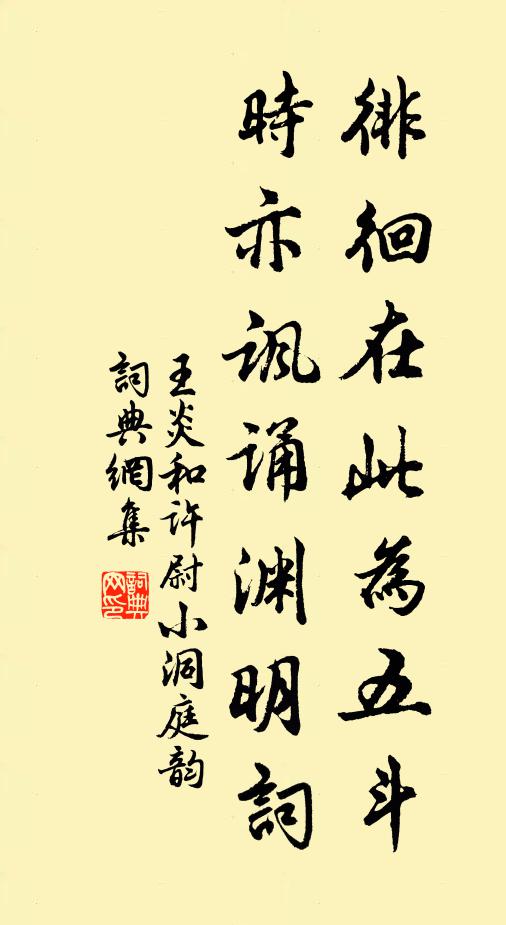 徘徊在此為五斗
時亦諷誦淵明詞
王炎和許尉小洞庭韵
詞典網集
詞典网印